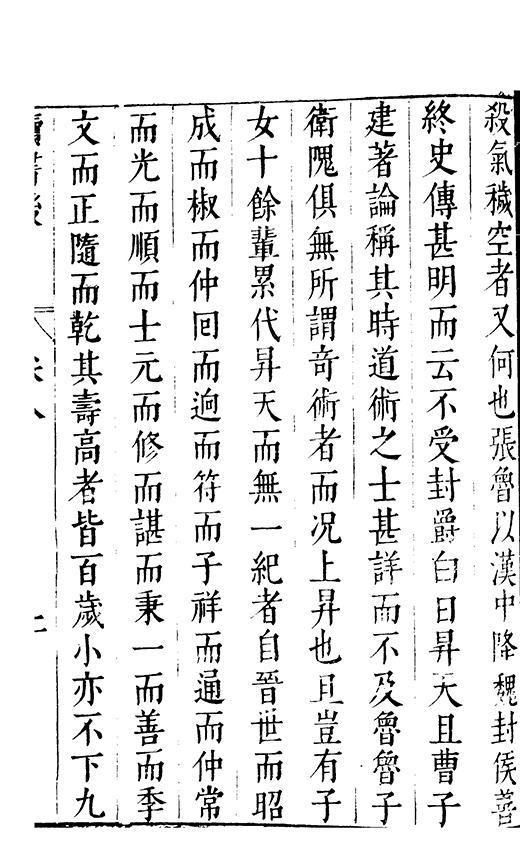 殺氣穢空者又何也張魯以漢中降魏封侯善
終史傳甚明而云不受封爵白日昇天且曹子
建著論稱其時道術之士甚詳而不及魯魯子
衛隗俱無所謂竒術者而况上昇也且豈有子
女十餘輩累代昇天而無一紀者自晉世而昭
成而椒而仲回而逈而符而子祥而通而仲常
而光而順而士元而修而諶而秉一而善而季
文而正隨而乾其壽高者皆百歲小亦不下九
讀書後
卷八